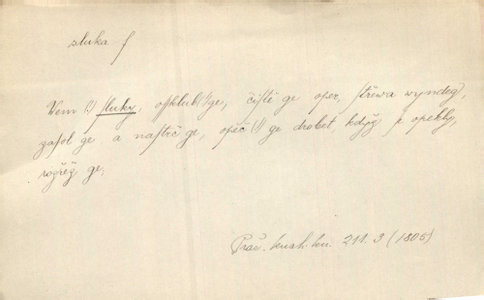 sluka f
Vem (!) sluky, ofsklub(!) ge, čistě ge oper, střewa wyndeg,
zasol ge a nastrč ge, opeč (!) ge drobet, když se opekly,
rozřež ge;
Praž. kuch. kn. 211. 3 (1805)